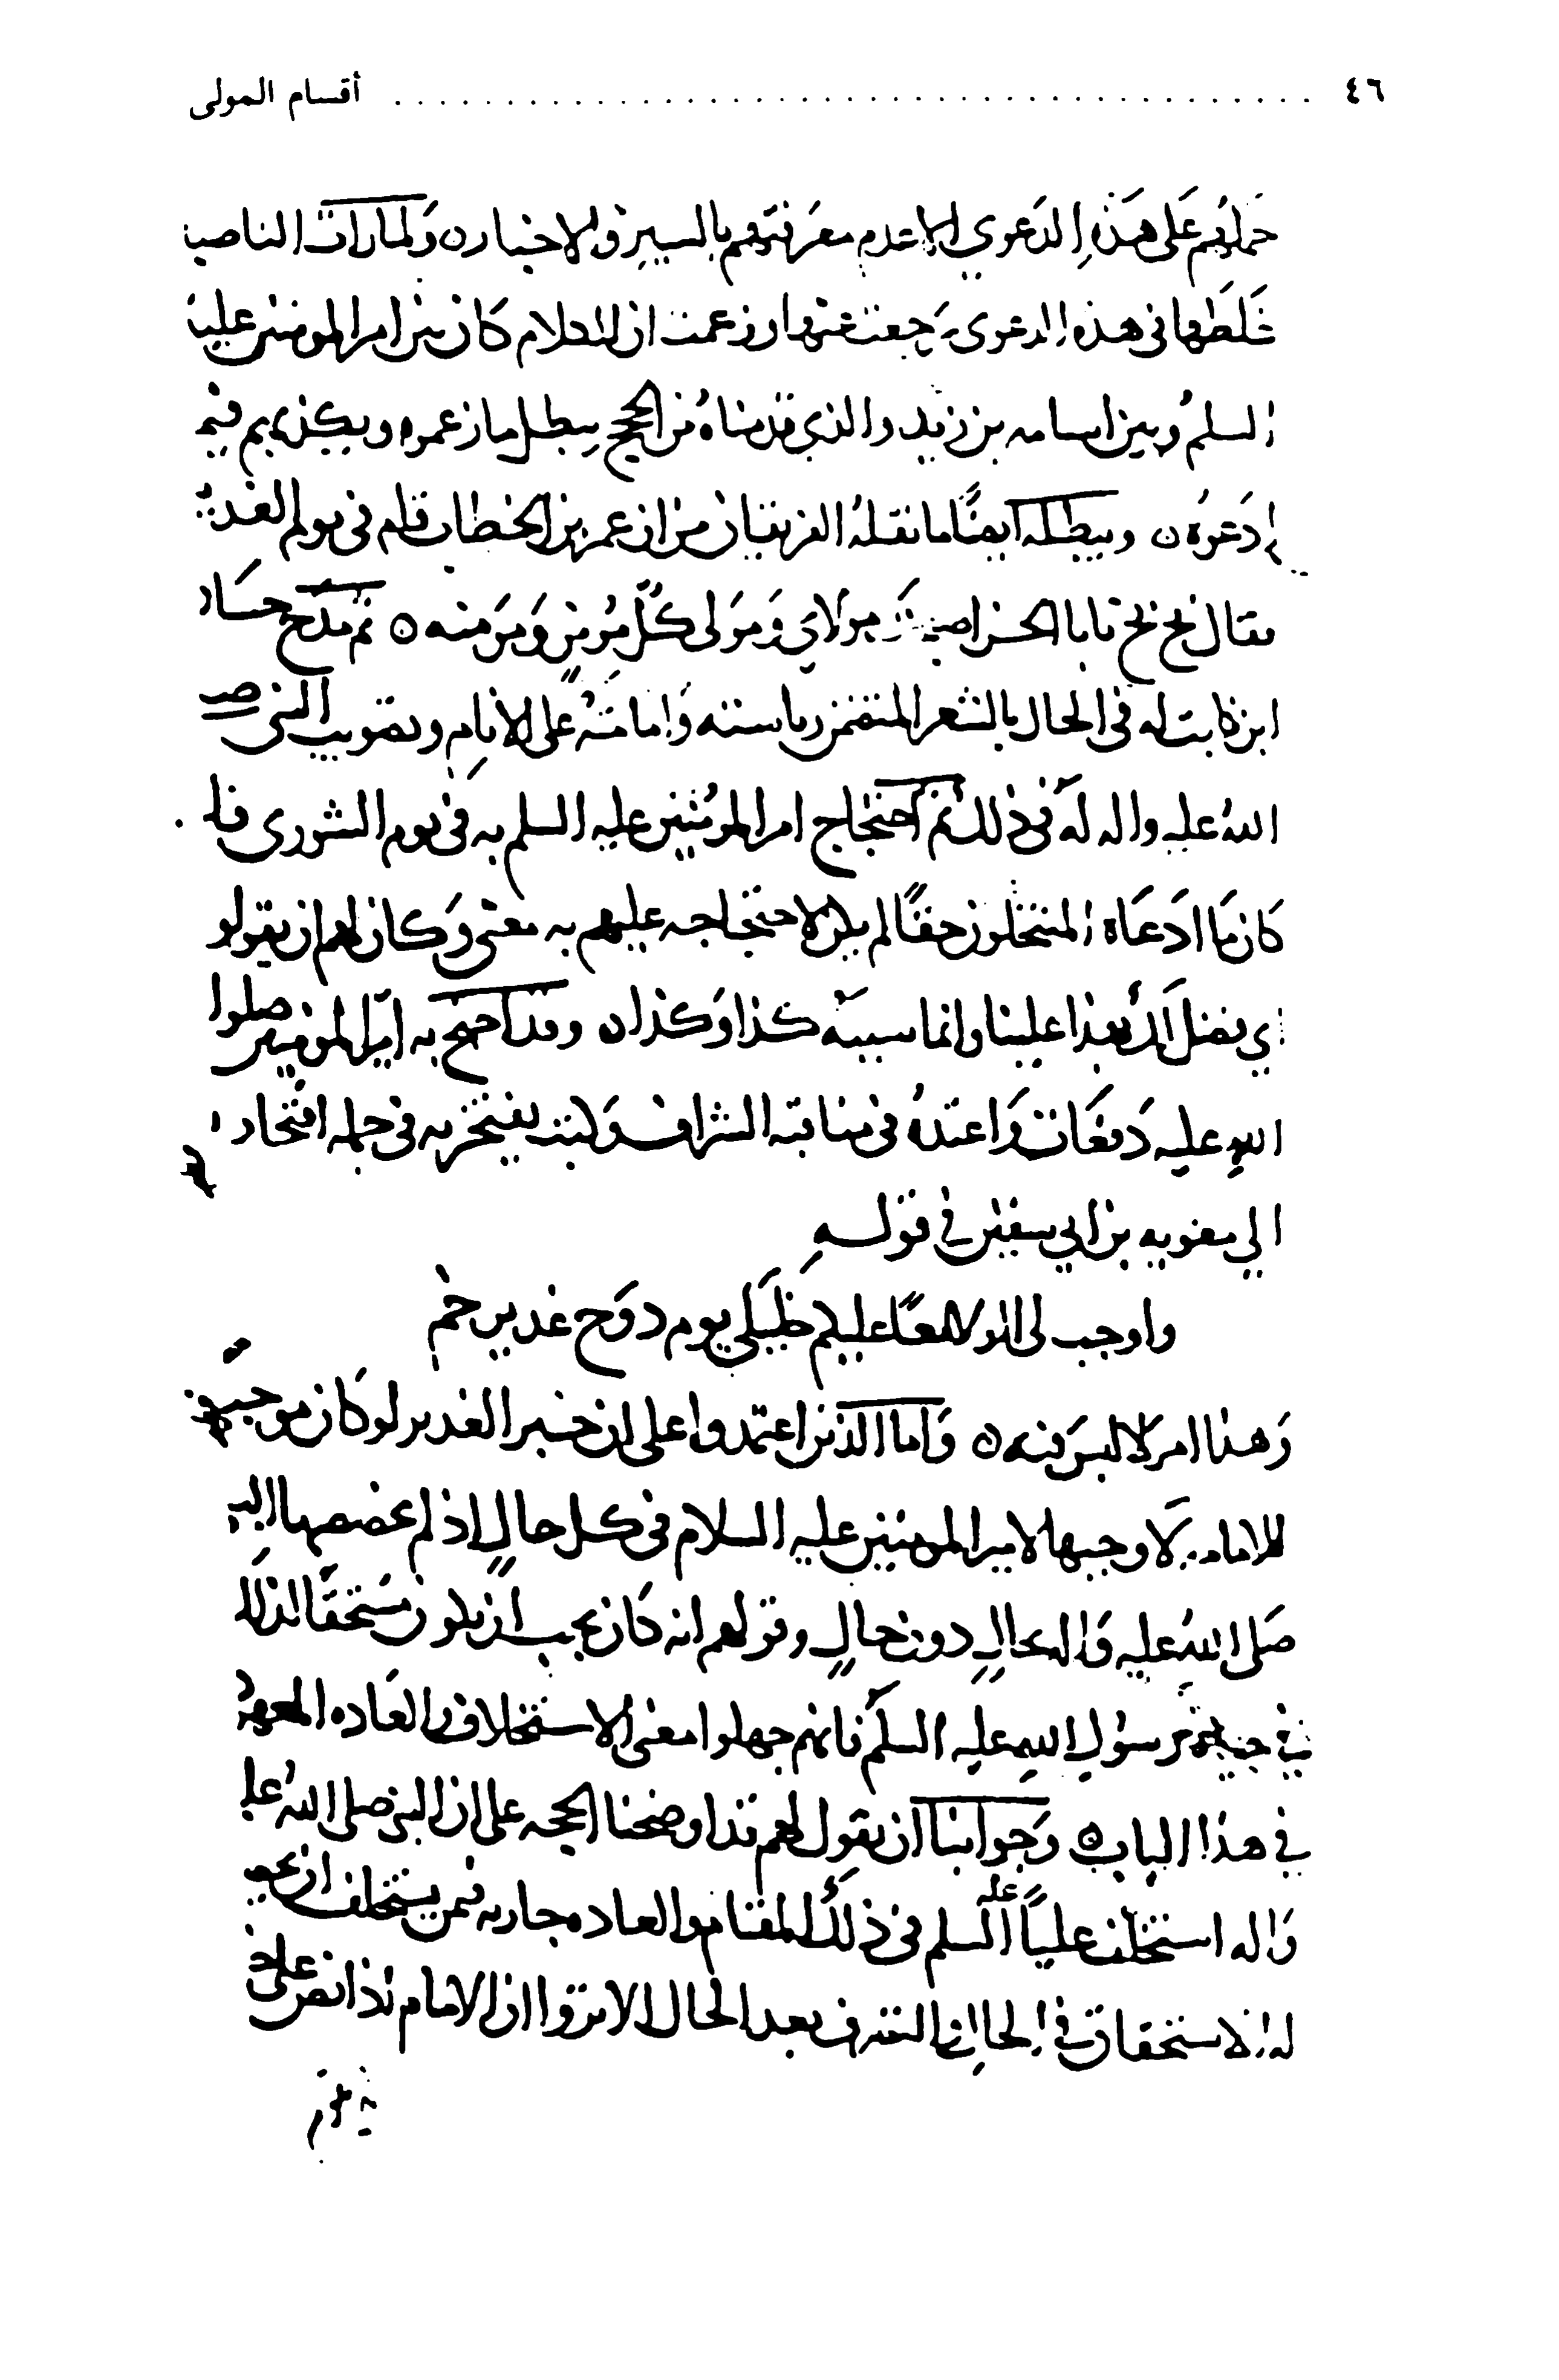 ٤٦ أقسام المولى
حملهم على هذه الدعوى الا عدم معرفتهم بالسير والاخبار ولما رات الناصبه
غلطها في هذه الدعوى رجعت عنها وزعمت ان الكلام كان بين امير المومنين عليه
السلم وبين اسامه بن زيد والذي قدمناه من الحجج يبطل ما زعموه ويكذبهم فيما
ادعوه ويبطله ايضا ما نقله الفريقان من ان عمر بن الخطاب قام في يوم الغدير
فقال بخ بخ يا با الحسن اصبحت مولاي ومولى كل مؤمن ومومنه ثم مدح حسان
ابن ثابت له في الحال بالشعر المتضمن رياسته وامامته على الانام وتصويب النبي صلى
الله عليه واله له في ذلك ثم احتجاج امير المومنين عليه السلم به في يوم الشورى فلو
كان ما ادعاه المنتحلون حقا لم يكن لاحتجاجه عليهم به معنى وكان لهم ان يقولوا
اي فضل لك بهذا علينا وانما سببه كذا وكذا وقد احتج به امير المومنين صلوات
الله عليه دفعات واعتده في مناقبه الشراف وكتب يفتخر به في جمله افتخاره
الى معويه بن ابي سفين في قوله
واوجب لي الولا معا عليكم خليلي يوم دوح غدير خم
وهذا امر لا لبس فيه واما الذين اعتمدوا على ان خبر الغدير لو كان موجبا
للامامه لاوجبها لامير المومنين عليه السلام في كل حال اذ لم يخصصها النبي
صلى الله عليه واله بحال دون حال وقولهم انه كان يجب ان يكون مستحقا لذلك
في حياه رسول الله عليه السلم فانهم جهلوا معنى الاستخلاف والعاده المعهوده
في هذا الباب وجوابنا ان نقول لهم قد اوضحنا الحجه على ان النبي صلى الله عليه
واله استخلف عليا عليه السلم في ذلك المقام والعاده جاريه فيمن يستخلف ان يحصل
له الاستحقاق في الحال والتصرف بعد الحال الا تروا ان الامام اذا نص على